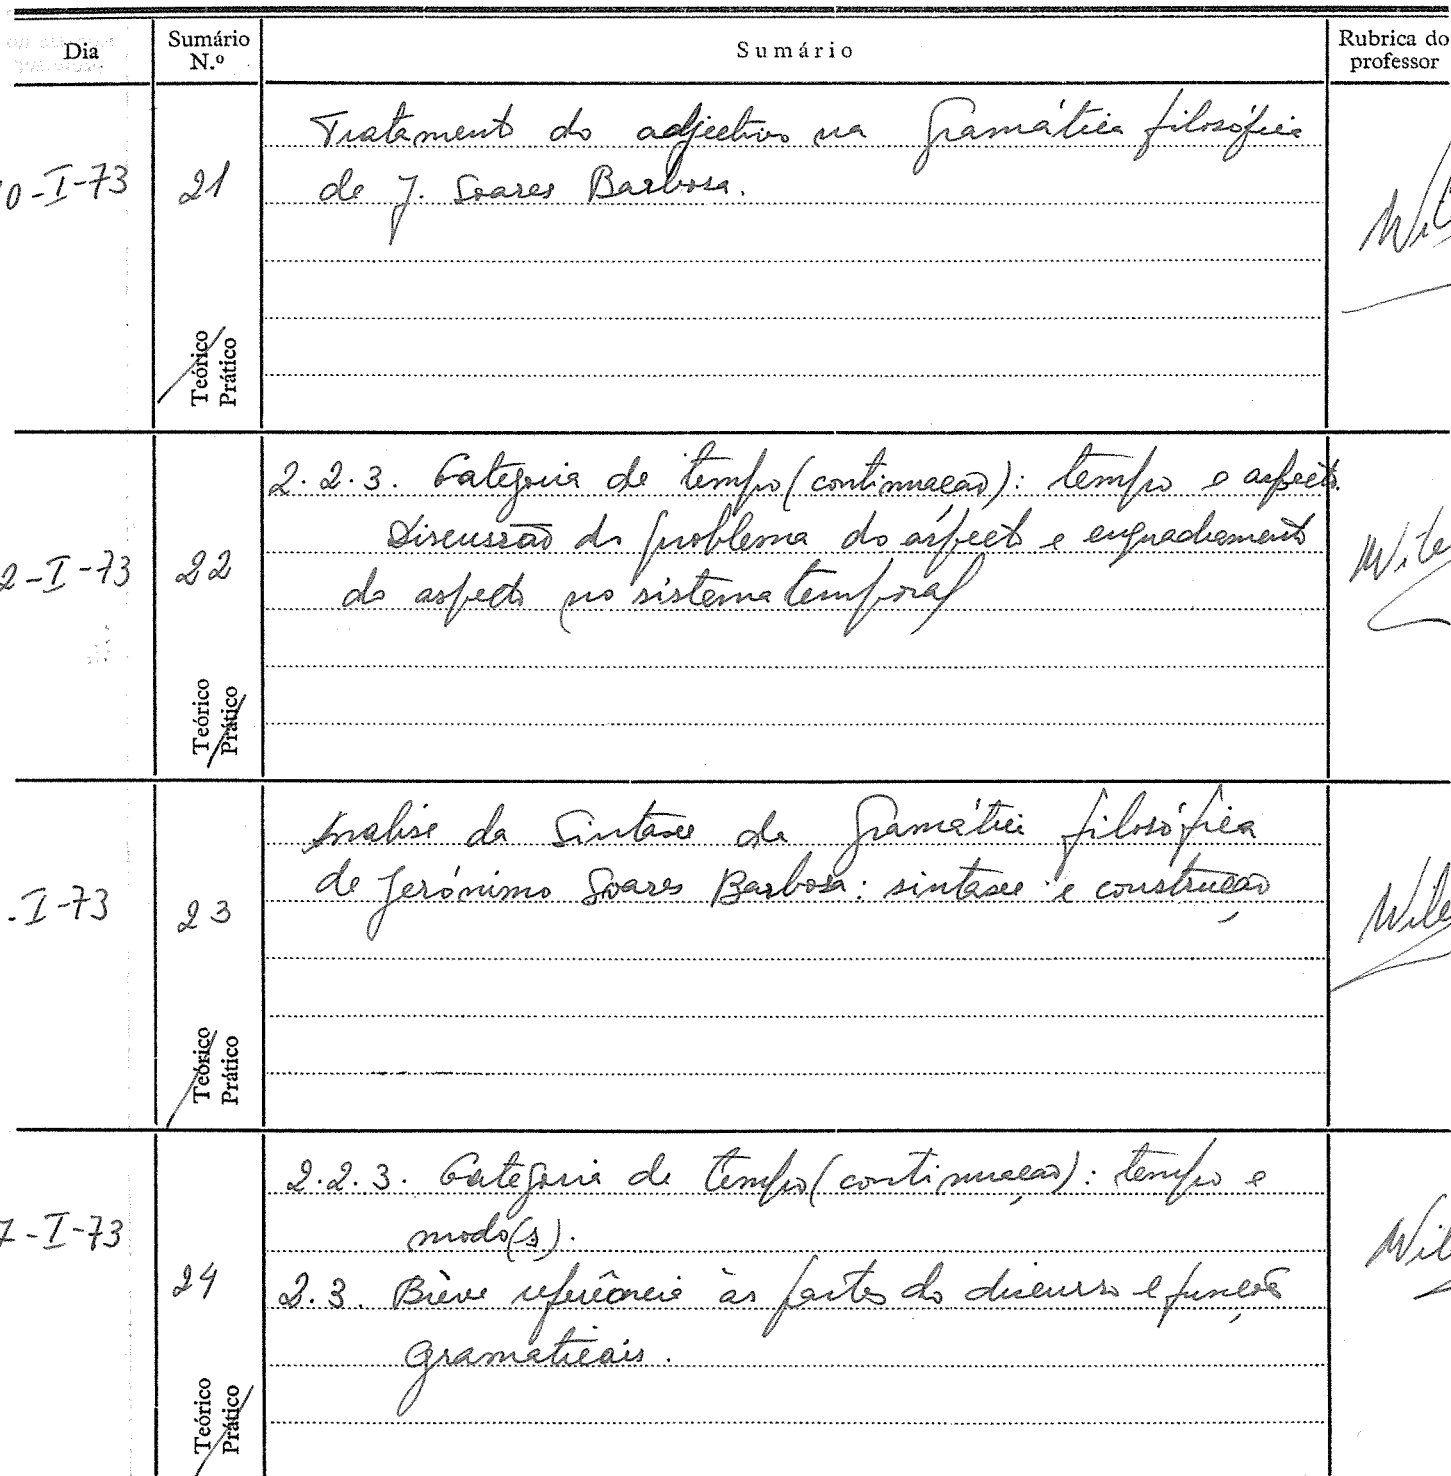 Dia Sumário N.º Sumário Rubrica do professor
Tratamento do adjectivo na Gramática filosófica
0-I-73 21 de J. Soares Barbosa.
Teórico
Prático
2.2.3. Categoria de tempo (continuação): tempo e aspecto.
Discussão do problema do aspecto e enquadramento
2-I-73 22 do aspecto no sistema temporal
Teórico
Prático
Análise da Sintaxe da Gramática filosófica
de Jerónimo Soares Barbosa: sintaxe e construção
.I-73 23
Teórico
Prático
2.2.3. Categoria de tempo (continuação): tempo e
7-I-73 modo(s).
24 2.3. Brève referência às partes do discurso e funções
gramaticais.
Teórico
Prático